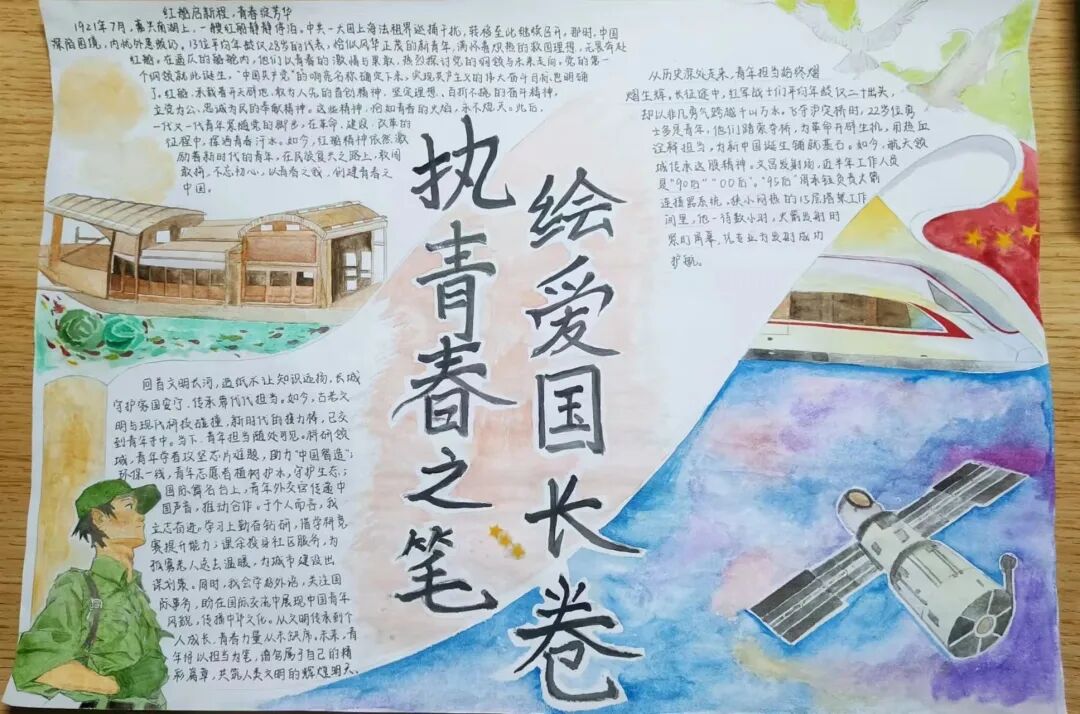 红船启新程,青春绽芳华
1921年7月,嘉兴南湖上,一艘红船静静停泊。中共一大因上海法租界巡捕干扰,转移至此继续召开,那时,中国
深陷困境,内忧外患,13位平均年龄仅28岁的代表,恰似风华正茂的新青年,满怀着炽热的救国理想,无畏奔赴
红船,在逼仄的船舱内,他们以青春的激情与果敢,热烈探讨党的纲领与未来走向,党的第一
个纲领就此诞生,“中国共产党”的响亮名称确定下来,实现共产主义的伟大奋斗目标思明确
了。红船,承载着开天辟地、敢为人先的首创精神、坚定理想、百折不挠的奋斗精神,
立党为公、忠诚为民的奉献精神。这些精神,恰如青春的火焰,永不熄灭。此后,
一代又一代青年紧随党的脚步,在革命、建设、改革的
征程中,挥洒青春汗水。如今,红船精神依然激
励着新时代的青年,在民族复兴之路上,敢闯
敢拼,不忘初心,以青春之我,创建青春之
中国。
执青春之笔
绘爱国长卷
从历史深处走来,青年担当始终熠
熠生辉。长征途中,红军战士们平均年龄仅二十出头,
却以非凡勇气跨越千山万水。飞夺泸定桥时,22岁位勇
士多是青年,他们踏索夺桥,为革命开辟生机,用热血
诠释担当,为新中国诞生铺就基石。如今,航天领
域传承这股精神。文昌发射场,近半年工作人员
是“90后”“00后”。“95后”周承钰负责火箭
连接器系统。狭小闷热的15层塔架工作
间里,他一待数小时,火箭发射时
紧盯屏幕,凭专业为发射成功
护航。
回首文明长河,造纸术让知识远扬,长城
守护家国安宁,传承着代代担当。如今,古老文
明与现代科技碰撞,新时代的接力棒,已交
到青年手中。当下,青年担当随处可见。科研领
域,青年学者攻坚芯片难题,助力“中国智造”;
环保一线,青年志愿者植树护水,守护生态;
国际舞台上,青年外交官传递中
国声音,推动合作。于个人而言,我
立志奋进。学习上勤奋钻研,借学科竞
赛提升能力;课余投身社区服务,为
孤寡老人送去温暖,为城市建设出
谋划策。同时,我会学好外语,关注国
际事务,助在国际交流中展现中国青年
风貌,传播中华文化。从文明传承到个
人成长,青春力量从未缺席。未来,青
年将以担当为笔,谱写属于自己的精
彩篇章,共筑人类文明的辉煌明天。